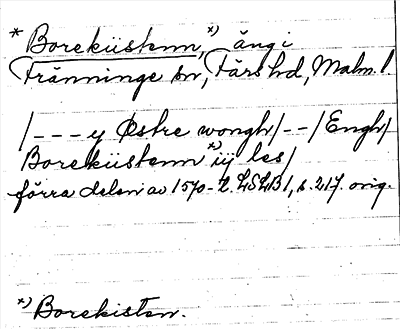 * Boreküstenn, *) äng i
Tränninge sn, Färs hd, Malm. l.
/- - - y Østre wongh/ - - / Engh/
Boreküstenn *) iij les/
förra delen av 1570-t. LSLB1, s. 217. orig.
*) Borekisten.